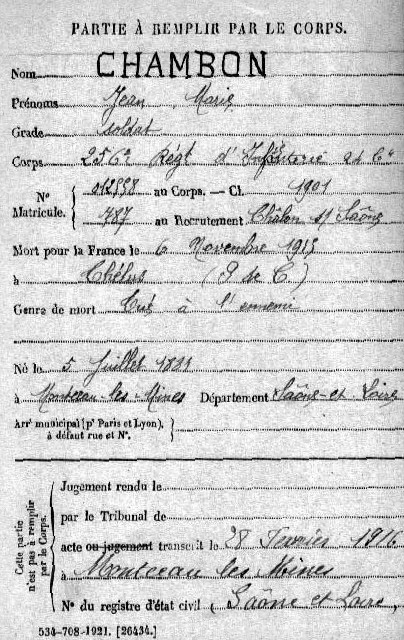 PARTIE À REMPLIR PAR LE CORPS.
Nom CHAMBON
Prénoms Jean Marie
Grade soldat
Corps 256e Régt d'Infanterie
N° Matricule. au Corps. — Cl. 1901
787 au Recrutement Châlon s/ Saône
Mort pour la France le 6 Novembre 1915
à (P de C)
Genre de mort Tué à l'ennemi
Né le 5 Juillet
à Montceau-les-Mines Département Saône-et-Loire
Arrt municipal (pr Paris et Lyon), à défaut rue et N°.
Cette partie n'est pas à remplir par le Corps.
Jugement rendu le
par le Tribunal de
acte ou jugement transcrit le 28 Fevrier 1916
à Montceau les Mines
N° du registre d'état civil (Saône et Loire)
534-708-1921. [26434.]